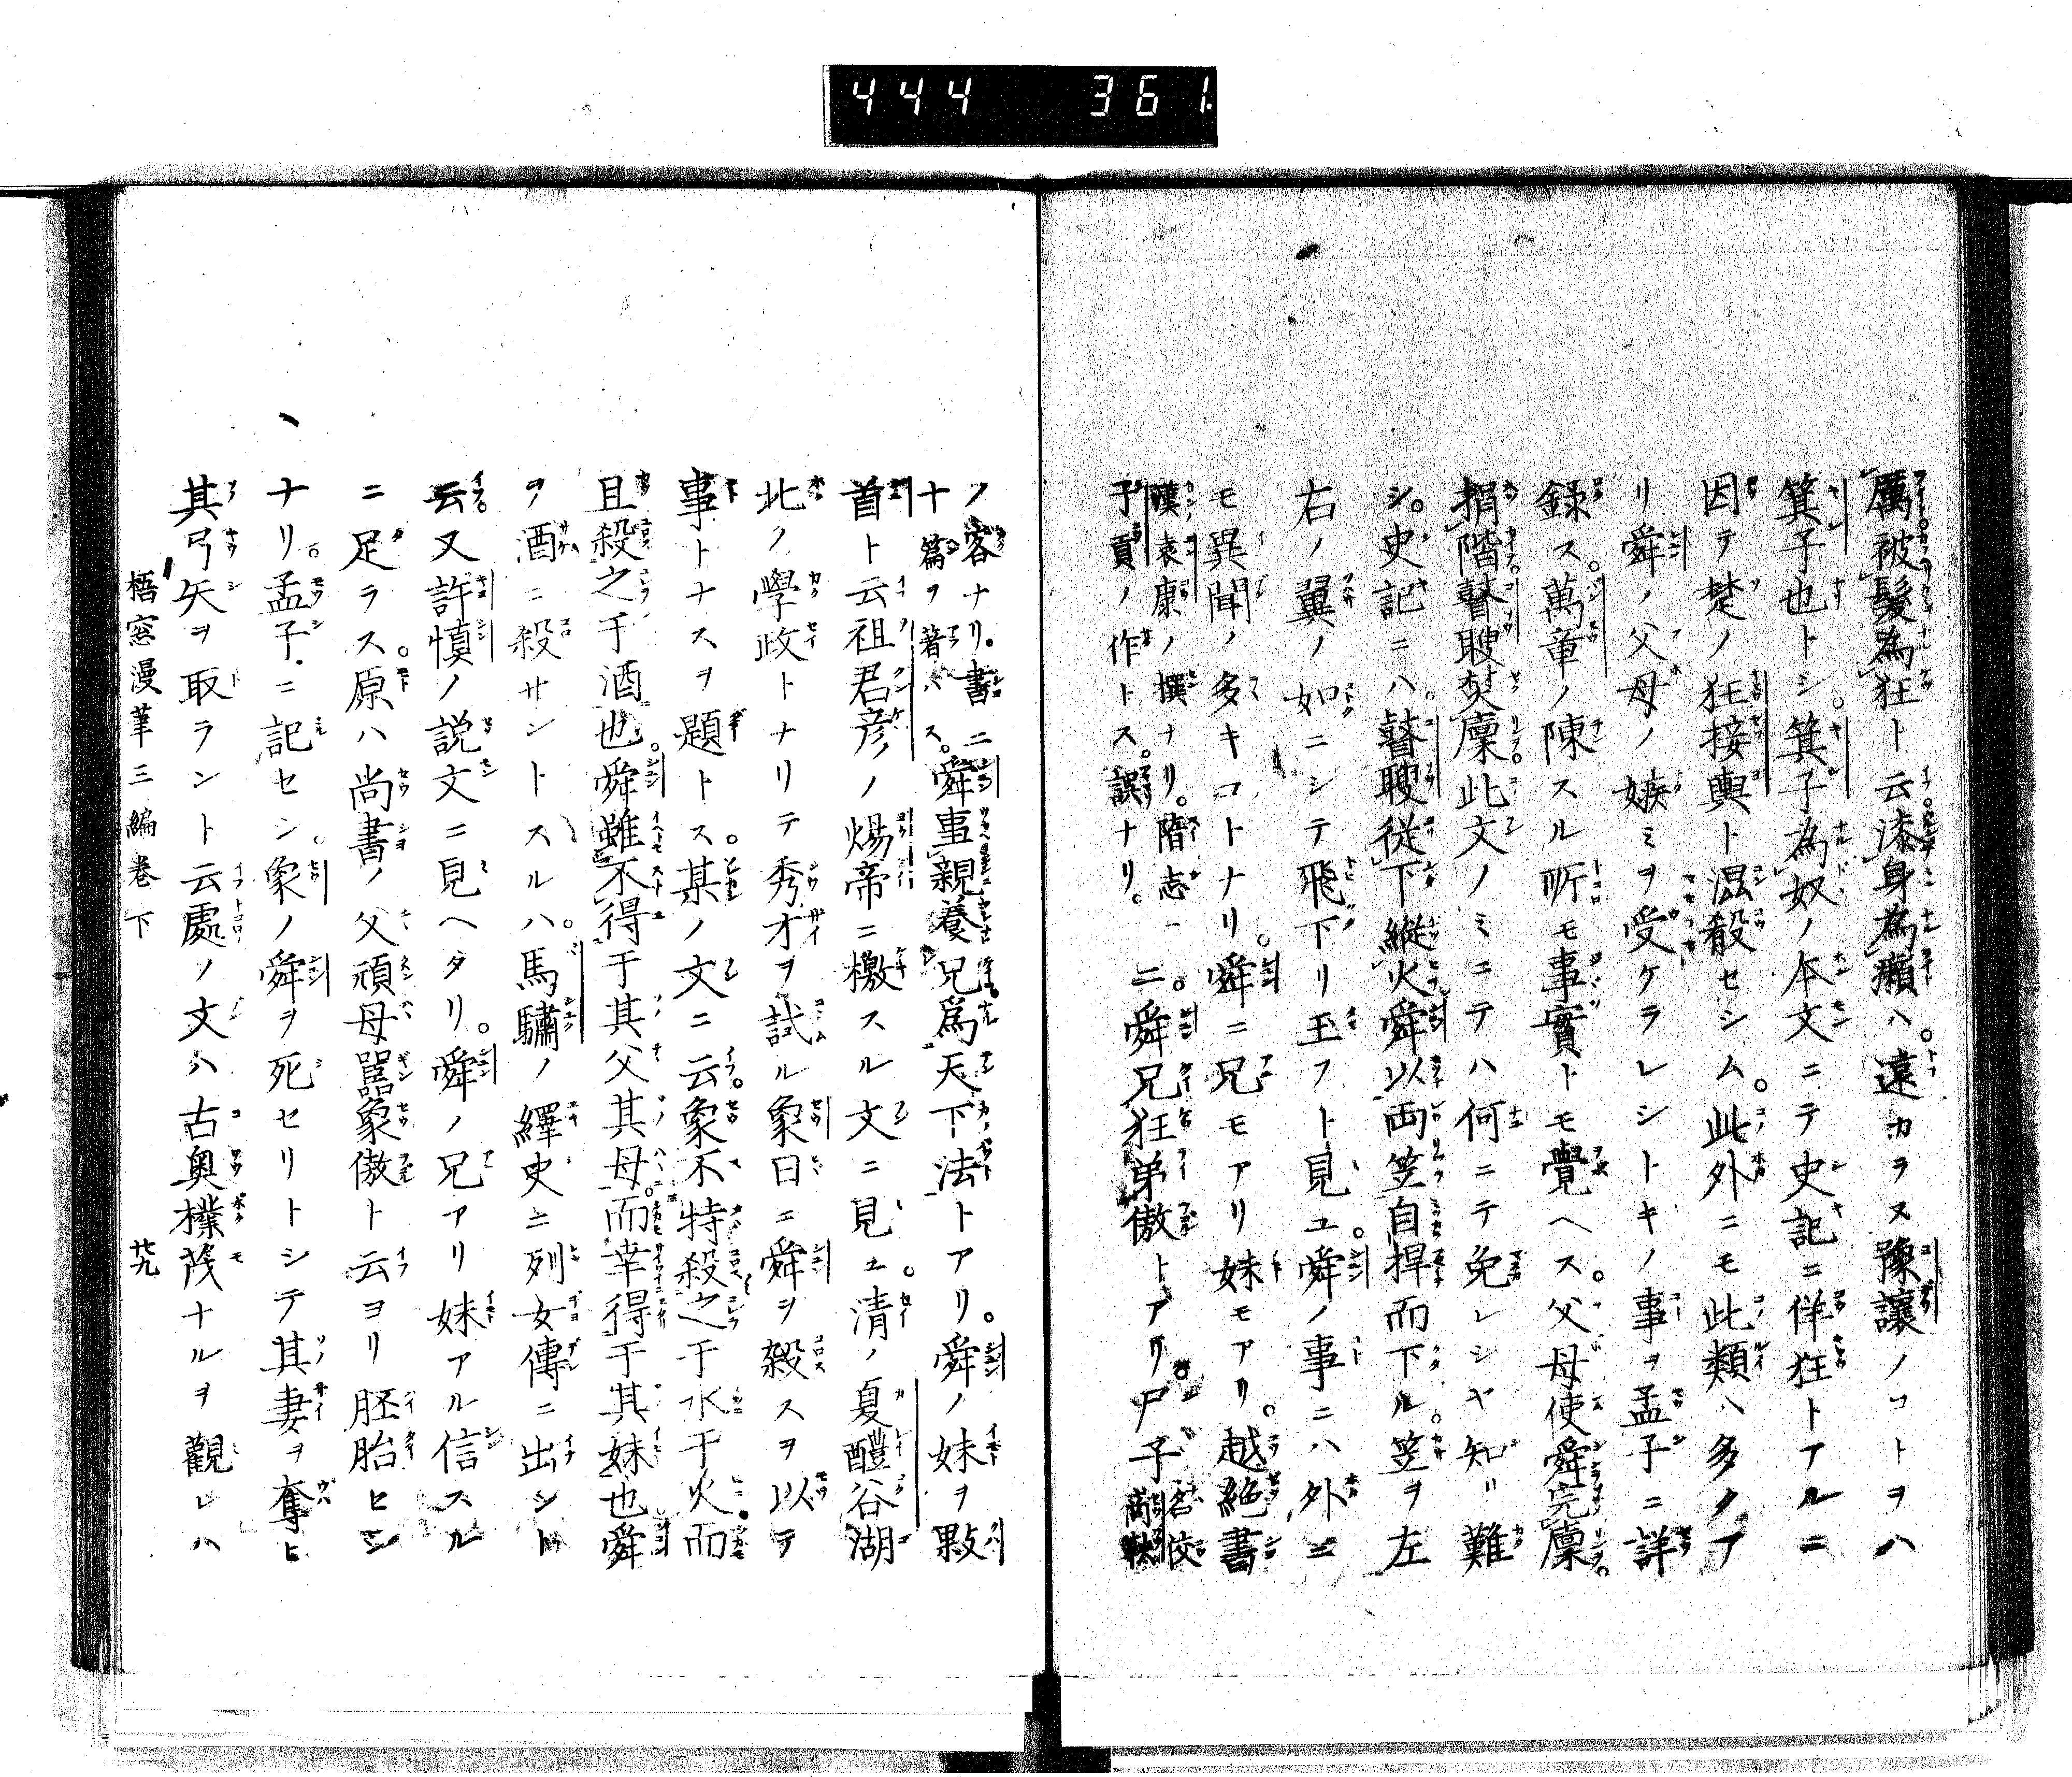 444 361
厲被髮為狂ト云漆身為瀬ハ。遠カラス豫讓ノコトヲハ
箕子也トシ。箕子為奴ノ本文ニテ史記ニ佯狂トアルニ
因テ楚ノ狂接輿ト混殽セシム。此外ニモ此類ハ多クア
リ舜ノ父母ノ嫉ミヲ受ケラレシトキノ事ヲ孟子ニ詳
錄ス。萬章ノ陳スル所モ事實トモ覺ヘス。父母使舜完廩。
捐階瞽瞍焚廩此文ノミニテハ何ニテ免レシヤ知リ難
シ。史記ニハ瞽瞍從下縱火舜以両笠自捍而下ル。笠ヲ左
右ノ翼ノ如ニシテ飛下リ玉フト見ユ。舜ノ事ニハ外ニ
モ異聞ノ多キコトナリ。舜ニ兄モアリ妹モアリ。越絶書
漢袁康ノ撰ナリ。隋志ニ
子貢ノ作トス。誤ナリ。
ニ。舜兄狂弟傲トアリ。尸子
名佼
商鞅
ノ客ナリ。書
十篇ヲ著ハス。
ニ舜事親養兄為天下法トアリ。舜ノ妹ヲ敤
首ト云祖君彦ノ煬帝ニ檄スル文ニ見ユ。清ノ夏醴谷湖
北ノ學政トナリテ秀才ヲ試ル象日ニ舜ヲ殺スヲ以テ
事トナスヲ題トス。某ノ文ニ云。象不特殺之于水于火而
且殺之于酒也。舜雖不得于其父其母。而幸得于其妹也舜
ヲ酒ニ殺サントスルハ。馬驌ノ繹史ニ列女傳ニ出シト
云。又許慎ノ説文ニ見ヘタリ。舜ノ兄アリ妹アル信スル
ニ足ラス。原ハ尚書ノ父頑母嚚象傲ト云ヨリ胚胎セシ
ナリ。孟子ニ記セシ。象ノ舜ヲ死セリトシテ其妻ヲ奪ヒ
其弓矢ヲ取ラント云處ノ文ハ古奥樸茂ナルヲ觀レハ
梧窓漫筆三編卷下 廿九